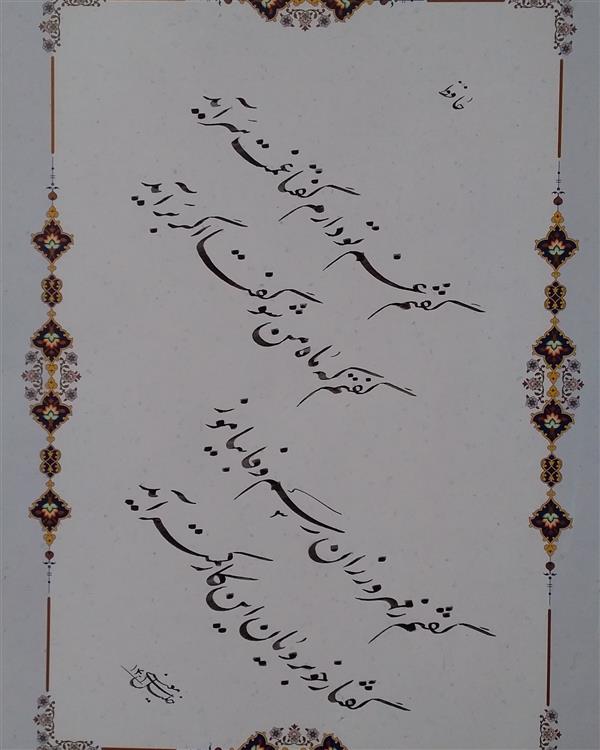 حافظ
گفتم غم تو دارم گفتا غمت سر آید
گفتم که ماه من شو گفتا اگر برآید
گفتم ز مهرورزان رسم وفا بیاموز
گفتا ز خوبرویان این کار کمتر آید